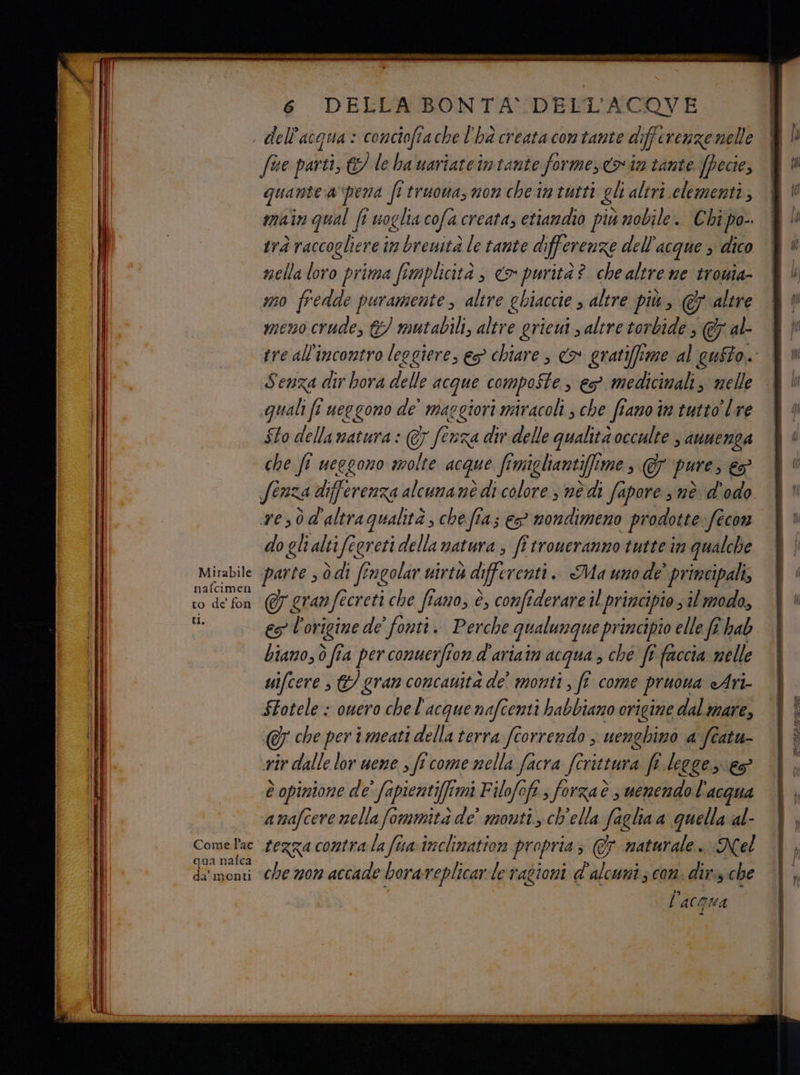 6 DELLA BONTA` DELL'ACQVE
dell'acqua: conciosiache l'hà creata con tante differenze nelle
sue parti, & le ha uariate in tante forme, & in tante specie,
quante a pena si truoua, non che in tutti gli altri elementi,
ma in qual si uoglia cosa creata, etiandio più nobile. Chi po-
trà raccogliere in breuità le tante differenze dell'acque, dico
nella loro prima simplicità, & purità? che altre ne trouia-
mo fredde puramente, altre ghiaccie, altre più, & altre
meno crude, & mutabili, altre grieui, altre torbide, & al-
tre all'incontro leggiere, & chiare, & gratissime al gusto.
Senza dir hora delle acque composte, & medicinali, nelle
quali si ueggono de' maggiori miracoli, che siano in tutto'l re
sto della natura: & senza dir delle qualità occulte, auuenga
che si ueggono molte acque simigliantissime, & pure, &
senza differenza alcuna nè di colore, nè di sapore, nè d'odo
re, ò d'altra qualità, che sia; & nondimeno prodotte secon
do gli alti segreti della natura, si troueranno tutte in qualche
Mirabile
nascimen
to de' fon
ti.
parte, ò di singolar uirtù differenti. Ma uno de' principali,
& gran secreti che siano, è, considerare il principio, il modo,
& l'origine de' fonti. Perche qualunque principio elle si hab
biano, ò sia per conuersion d'aria in acqua, che si faccia nelle
uiscere, & gran concauità de' monti, si come pruoua Ari-
stotele: ouero che l'acque nascenti habbiano origine dal mare,
& che per i meati della terra scorrendo, uenghino a scatu-
rir dalle lor uene, si come nella sacra scrittura si legge, &
è opinione de' sapientissimi Filosofi, forza è, uenendo l'acqua
a nascere nella sommità de' monti, ch'ella saglia a quella al-
Come l'ac
qua nasca
da' monti
tezza contra la sua inclination propria, & naturale. Nel
che non accade hora replicar le ragioni d'alcuni, con dir, che
l'acqua